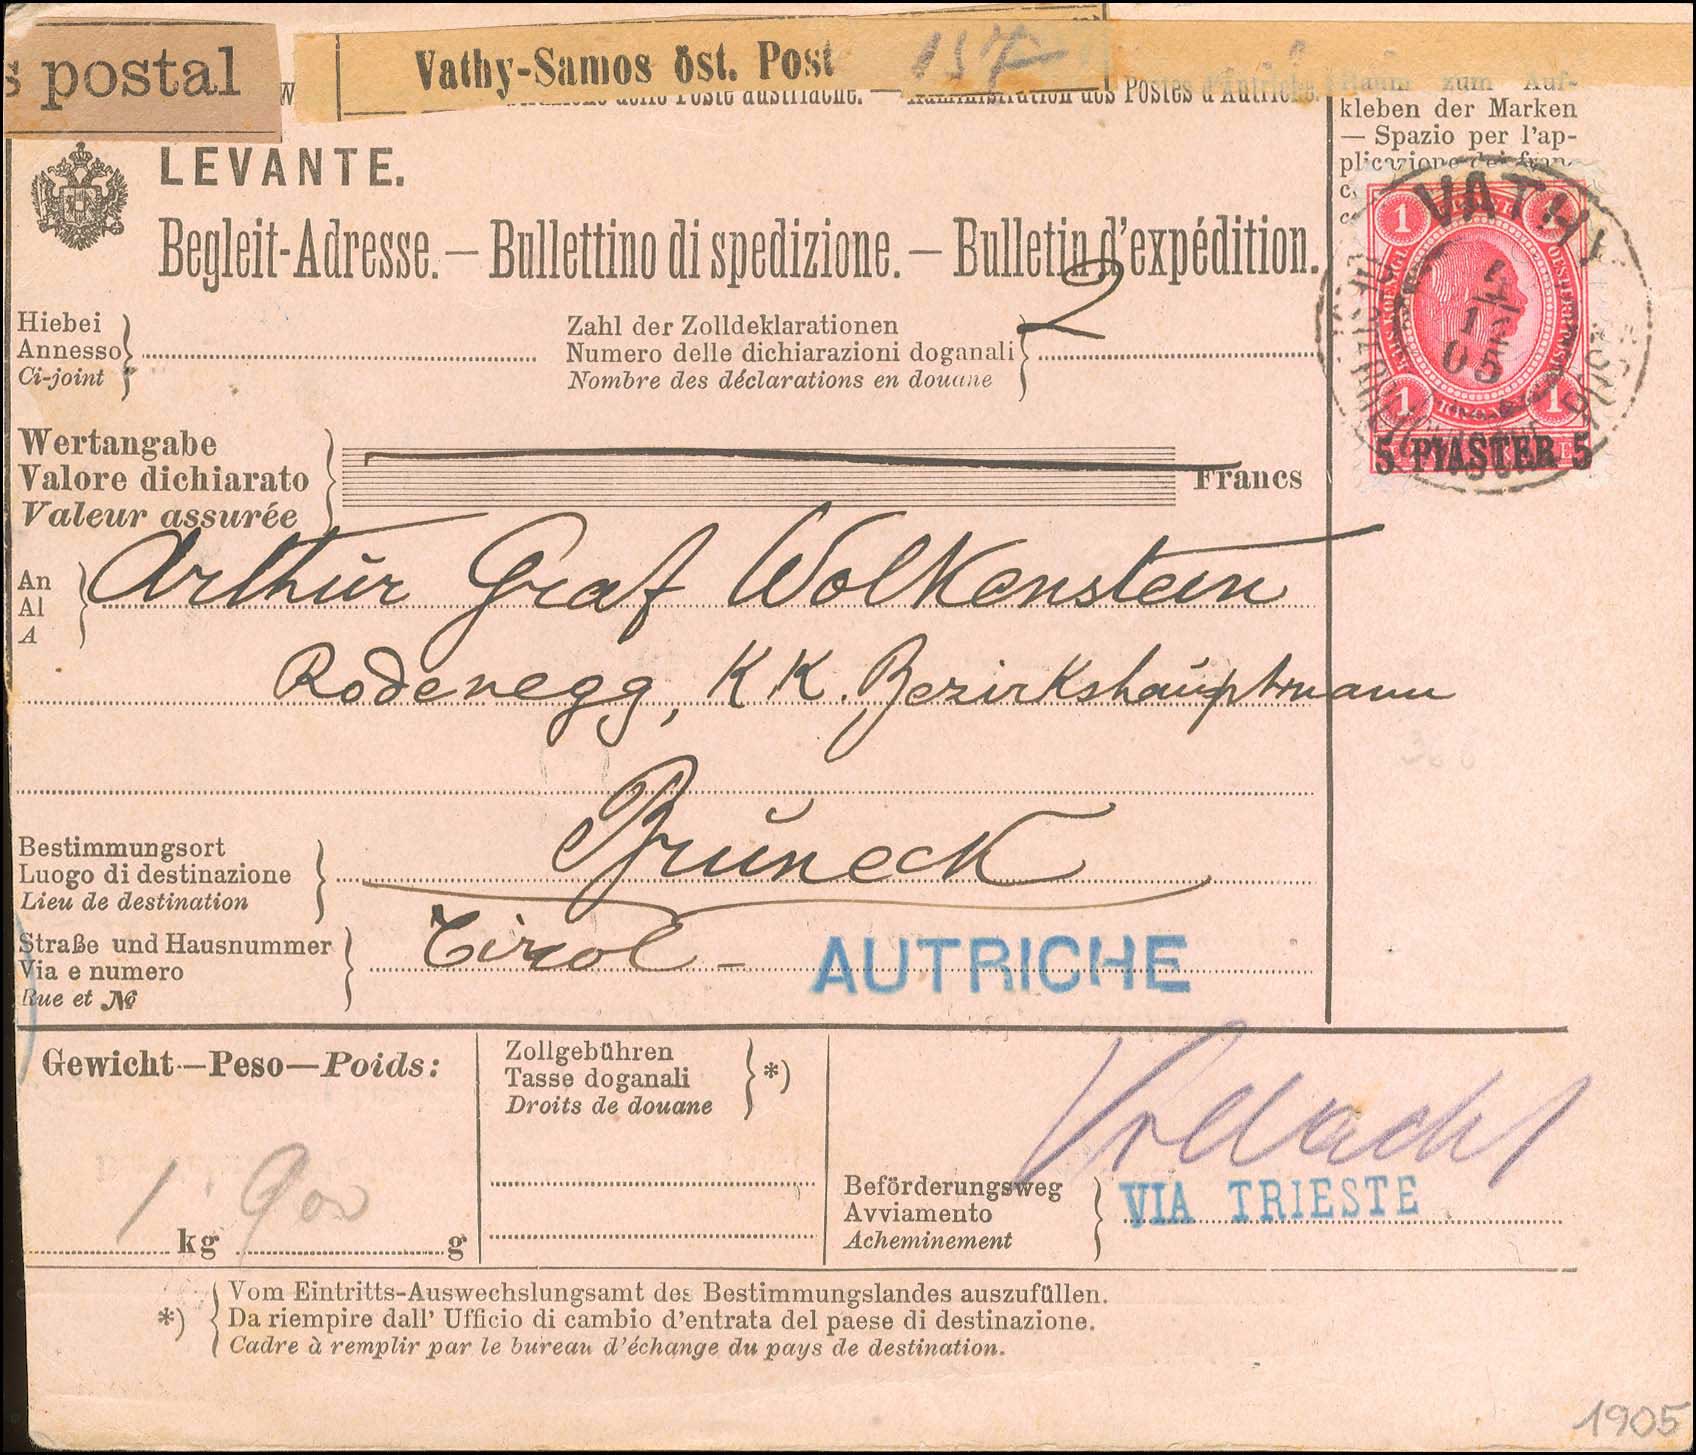 s postal
Vathy-Samos öst. Post 157
Administration des Postes d'Autriche.
Raum zum Auf-
kleben der Marken
— Spazio per l'ap-
plicazione dei fran-
LEVANTE.
Begleit-Adresse. — Bullettino di spedizione. — Bulletin d'expédition.
VATHI
05
1 1
1 1
5 PIASTER 5
Hiebei
Annesso
Ci-joint
Zahl der Zolldeklarationen
Numero delle dichiarazioni doganali
Nombre des déclarations en douane
2
Wertangabe
Valore dichiarato
Valeur assurée
Francs
An
Al
A
Arthur Graf Wolkenstein
Rodenegg, K K. Bezirkshauptmann
Bestimmungsort
Luogo di destinazione
Lieu de destination
Bruneck
Straße und Hausnummer
Via e numero
Rue et №
Tirol -
AUTRICHE
Gewicht—Peso—Poids:
1 kg 900 g
Zollgebühren
Tasse doganali
Droits de douane
*)
Beförderungsweg
Avviamento
Acheminement
VIA TRIESTE
*)
Vom Eintritts-Auswechslungsamt des Bestimmungslandes auszufüllen.
Da riempire dall' Ufficio di cambio d'entrata del paese di destinazione.
Cadre à remplir par le bureau d'échange du pays de destination.
1905